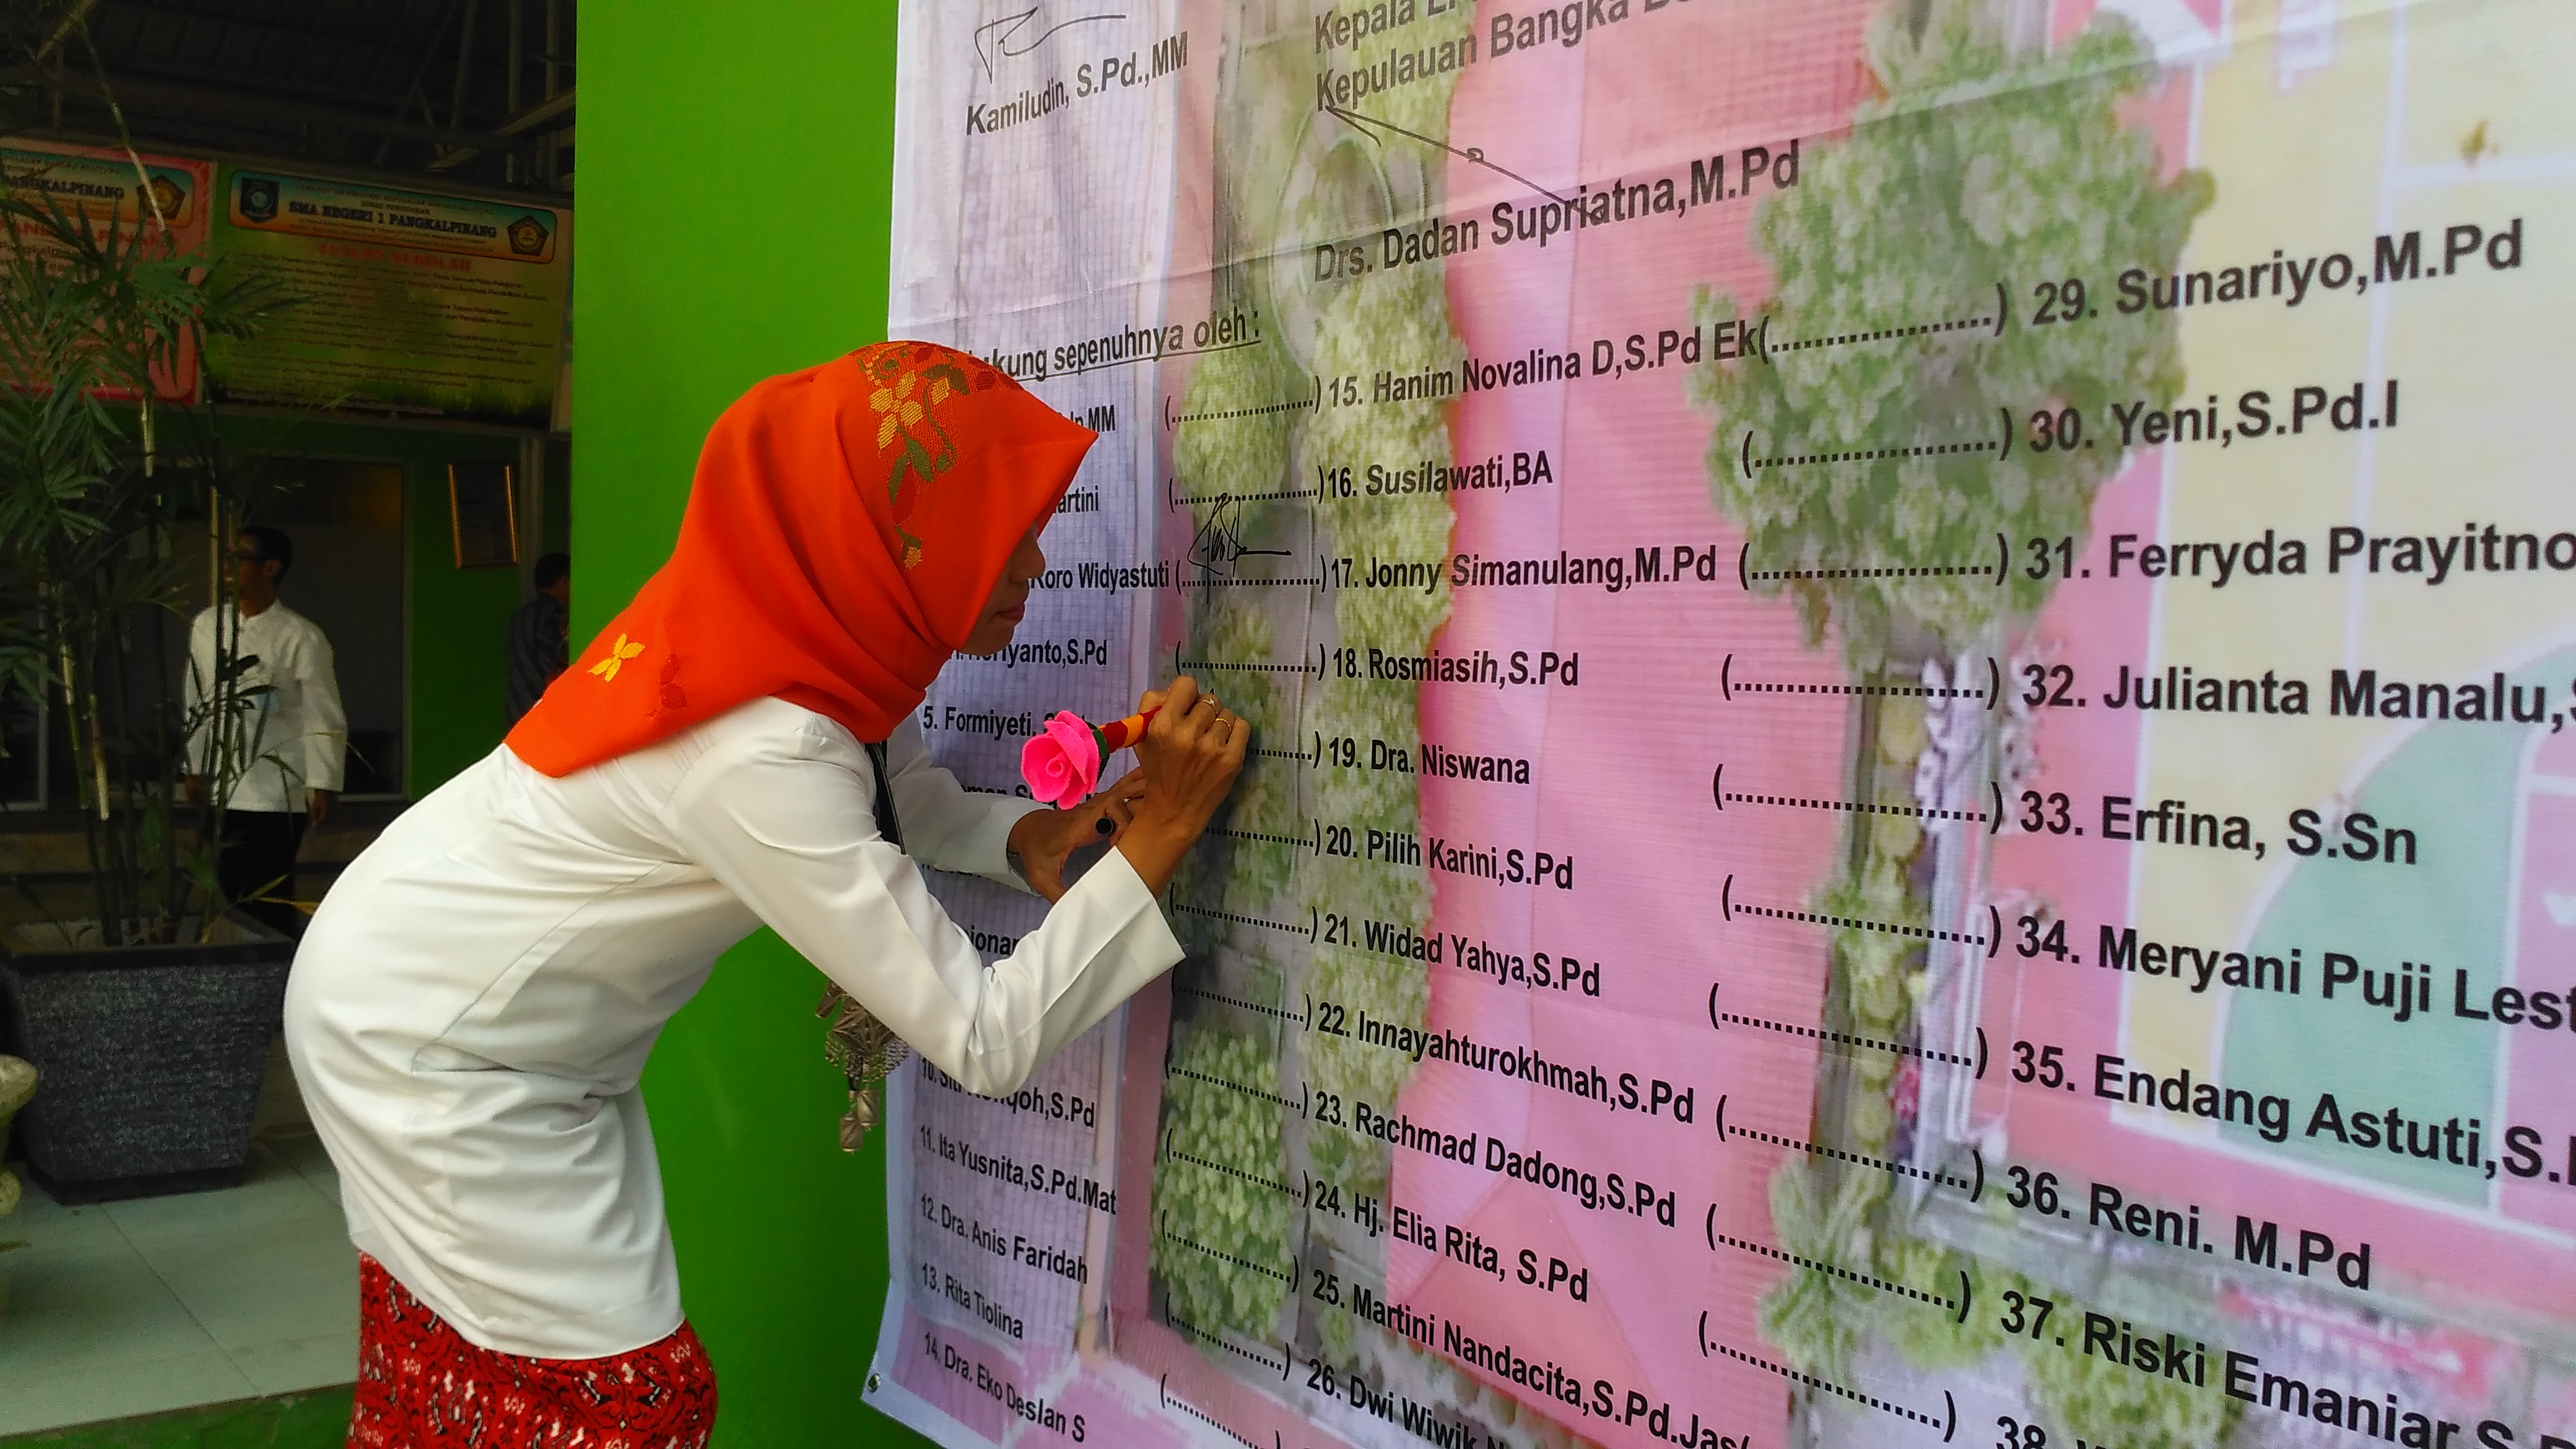 Kamiludin, S.Pd.,MM
Kepala
Kepulauan Bangka
Drs. Dadan Supriatna,M.Pd
PANGKALPINANG
SMA NEGERI 1 PANGKALPINANG
TUJUAN SEKOLAH
kung sepenuhnya oleh :
MM (....................)
artini (....................)
Koro Widyastuti (....................)
iyanto,S.Pd (....................)
5. Formiyeti.
oh,S.Pd
11. Ita Yusnita,S.Pd.Mat
12. Dra. Anis Faridah
13. Rita Tiolina
14. Dra. Eko Deslan S
15. Hanim Novalina D,S.Pd Ek(....................)
16. Susilawati,BA (....................)
17. Jonny Simanulang,M.Pd (....................)
18. Rosmiasih,S.Pd (....................)
19. Dra. Niswana (....................)
20. Pilih Karini,S.Pd (....................)
21. Widad Yahya,S.Pd (....................)
22. Innayahturokhmah,S.Pd (....................)
23. Rachmad Dadong,S.Pd (....................)
24. Hj. Elia Rita, S.Pd (....................)
25. Martini Nandacita,S.Pd.Jas(
26. Dwi Wiwik
29. Sunariyo,M.Pd
30. Yeni,S.Pd.I
31. Ferryda Prayitno
32. Julianta Manalu,
33. Erfina, S.Sn
34. Meryani Puji Lest
35. Endang Astuti,S.
36. Reni. M.Pd
37. Riski Emaniar S
38.